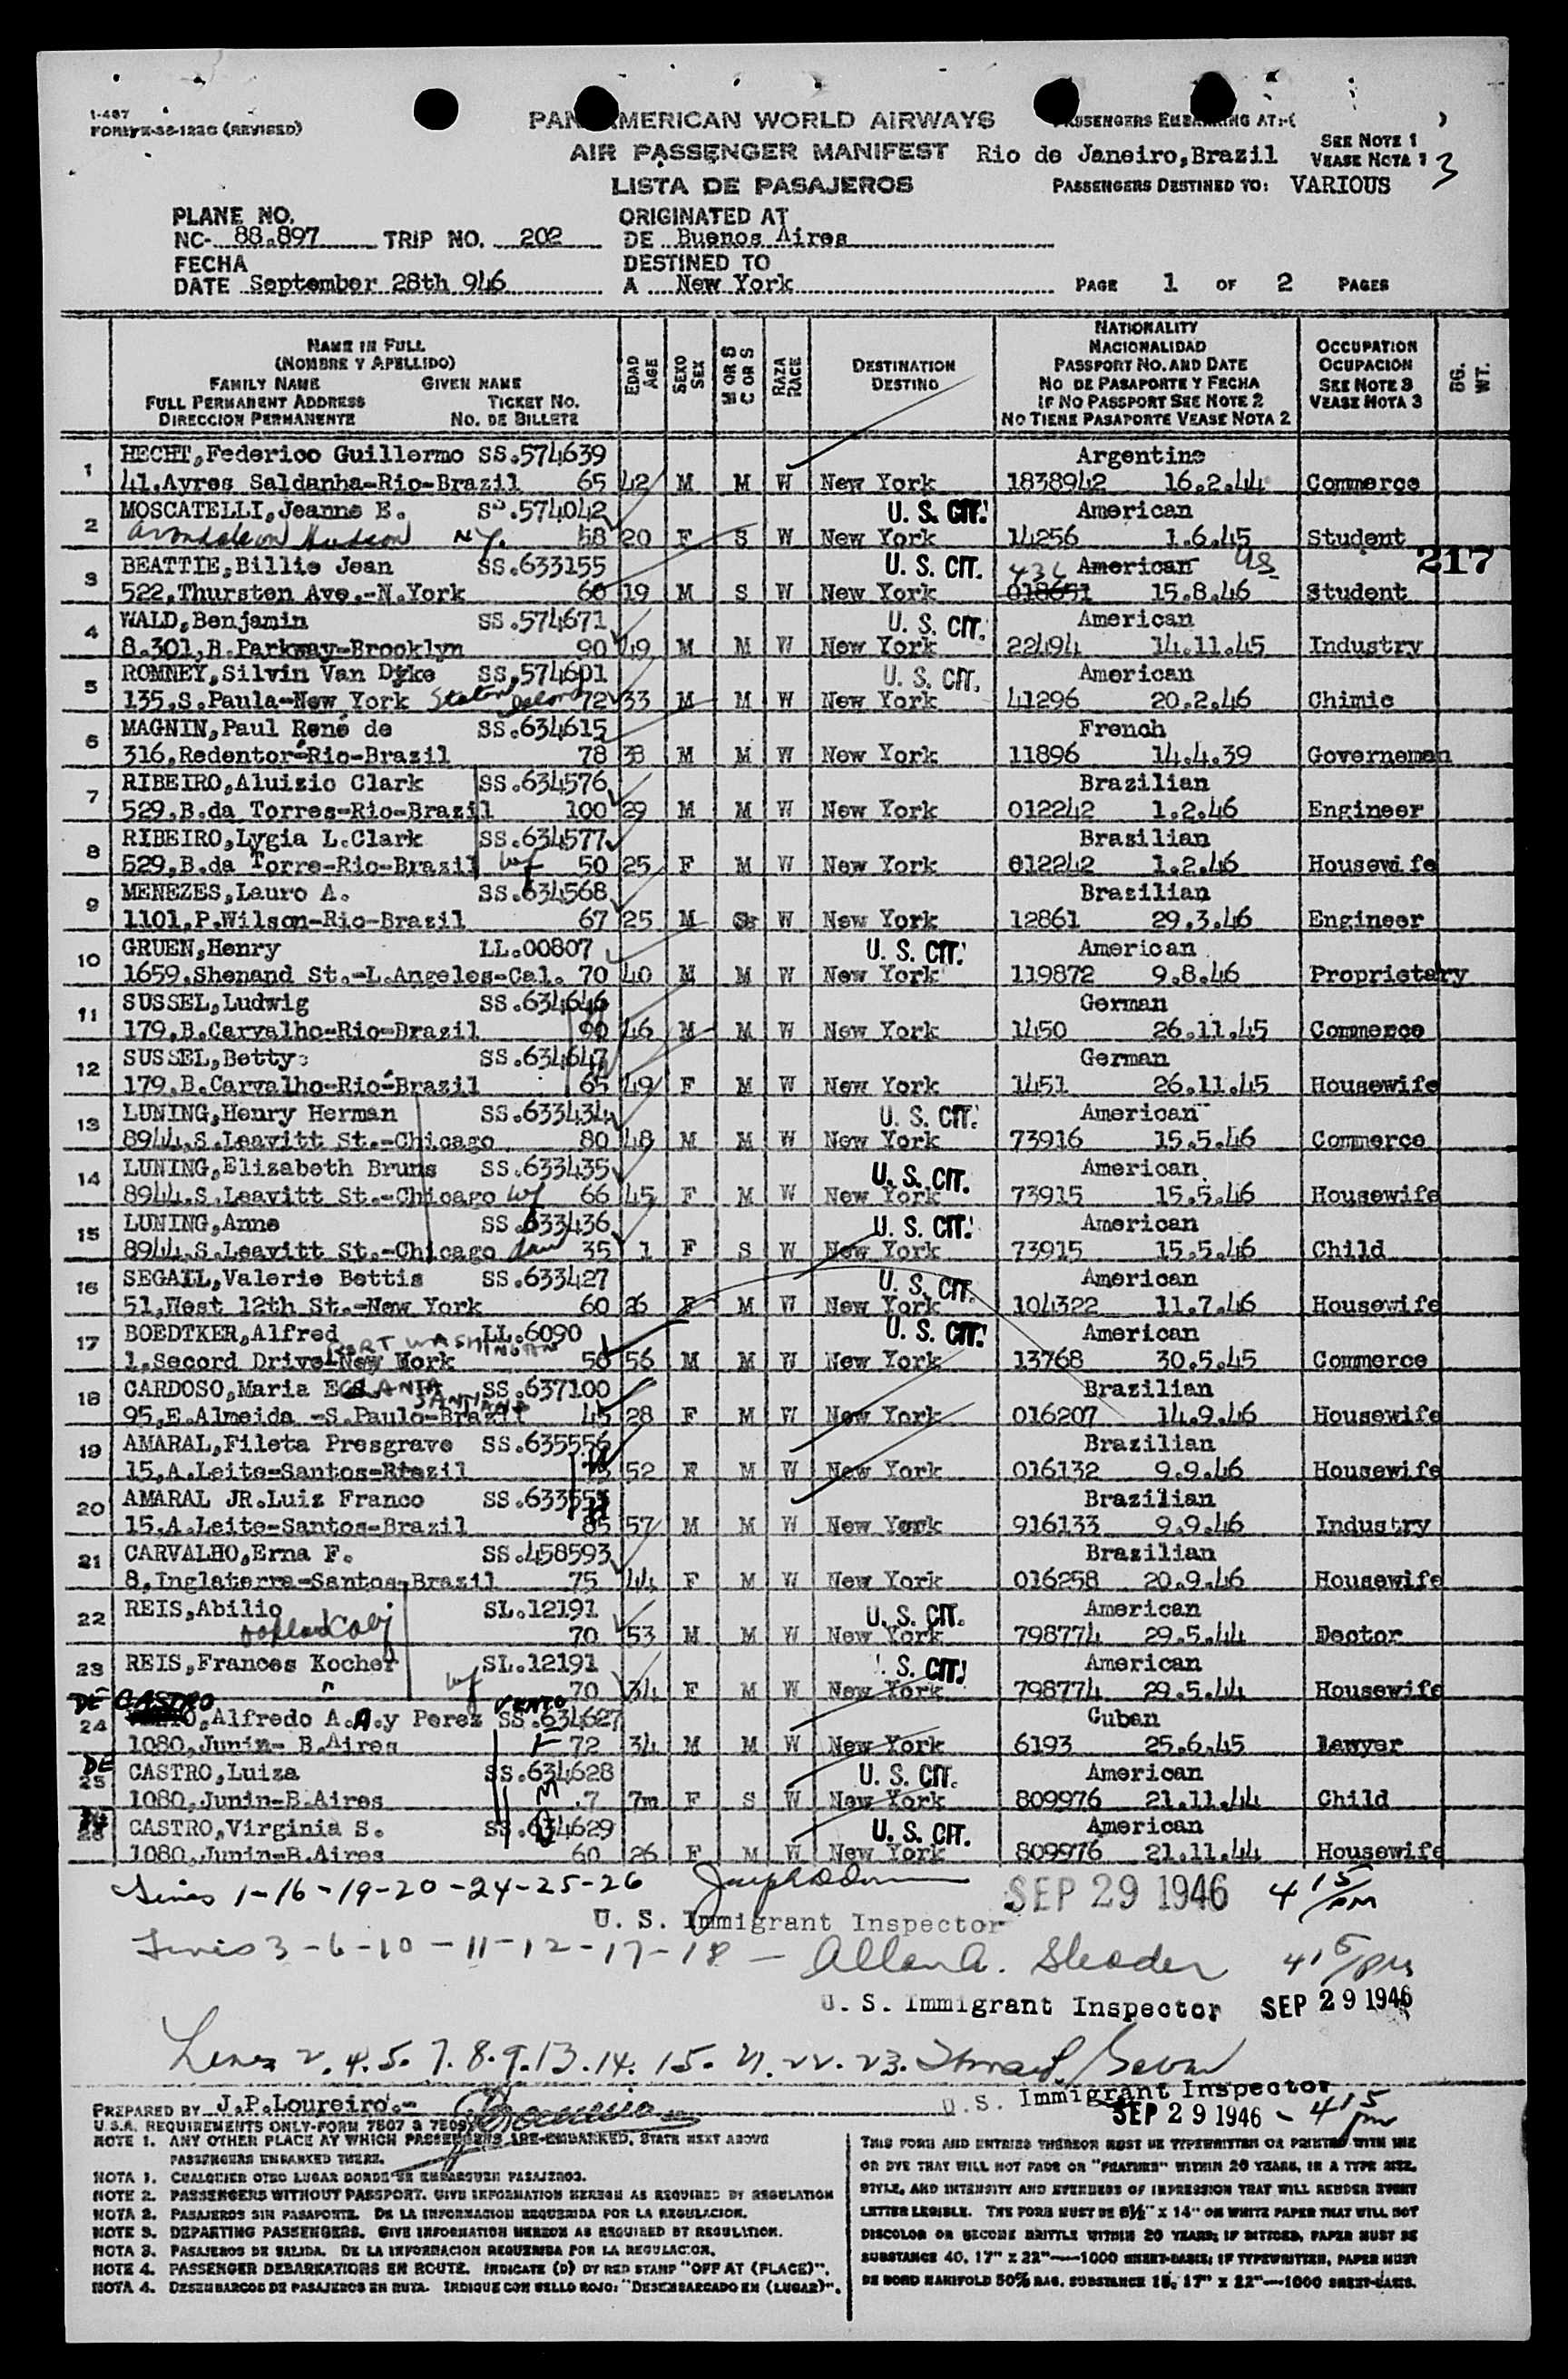 1-487
PAN AMERICAN WORLD AIRWAYS
AIR PASSENGER MANIFEST Rio de Janeiro,Brazil
SEE NOTE 1
VEASE NOTA 1
3
LISTA DE PASAJEROS
PASSENGERS DESTINED TO: VARIOUS
PLANE NO.
NC- 88.897 TRIP NO. 202
ORIGINATED AT
DE Buenos Aires
FECHA
DATE September 28th 946
DESTINED TO
A New York
PAGE 1 OF 2 PAGES
NAME IN FULL
(NOMBRE Y APELLIDO)
FAMILY NAME GIVEN NAME
FULL PERMANENT ADDRESS TICKET NO.
DIRECCION PERMANENTE NO. DE BILLETE
EDAD AGE
SEXO SEX
M OR S C OR S
RAZA RACE
DESTINATION
DESTINO
NATIONALITY
NACIONALIDAD
PASSPORT NO. AND DATE
NO DE PASAPORTE Y FECHA
IF NO PASSPORT SEE NOTE 2
NO TIENE PASAPORTE VEASE NOTA 2
OCCUPATION
OCUPACION
SEE NOTE 3
VEASE NOTA 3
BG. WT.
1 HECHT,Federico Guillermo SS.574639 Argentine
41.Ayres Saldanha-Rio-Brazil 65 42 M M W New York 1838942 16.2.44 Commerce
2 MOSCATELLI,Jeanne E. SS.574042 U. S. CIT. American
Hudson N.Y. 58 20 F S W New York 14256 1.6.45 Student
217
3 BEATTIE,Billie Jean SS.633155 U. S. CIT. American
522,Thurston Ave.-N.York 60 19 M S W New York 018651 15.8.46 Student
4 WALD,Benjamin SS.574671 U. S. CIT. American
8.301,B.Parkway-Brooklyn 90 49 M M W New York 22494 14.11.45 Industry
5 ROMNEY,Silvin Van Dyke SS.574601 U. S. CIT. American
135.S.Paula-New York Staten Island 72 33 M M W New York 41296 20.2.46 Chimic
6 MAGNIN,Paul René de SS.634615 French
316,Redentor-Rio-Brazil 78 38 M M W New York 11896 14.4.39 Governemen
7 RIBEIRO,Aluizio Clark SS.634576 Brazilian
529.B.da Torres-Rio-Brazil 100 29 M M W New York 012242 1.2.46 Engineer
8 RIBEIRO,Lygia L.Clark SS.634577 Brazilian
529,B.da Torre-Rio-Brazil wf 50 25 F M W New York 012242 1.2.46 Housewife
9 MENEZES,Lauro A. SS.634568 Brazilian
1101,P.Wilson-Rio-Brazil 67 25 M W New York 12861 29.3.46 Engineer
10 GRUEN,Henry LL.00807 U. S. CIT. American
1659.Shenand St.-L.Angeles-Cal. 70 40 M M W New York 119872 9.8.46 Proprietary
11 SUSSEL,Ludwig SS.634646 German
179.B.Carvalho-Rio-Brazil 90 46 M M W New York 1450 26.11.45 Commerce
12 SUSSEL,Betty SS.634647 German
179.B.Carvalho-Rio-Brazil 65 49 F M W New York 1451 26.11.45 Housewife
13 LUNING,Henry Herman SS.633434 U. S. CIT. American
8944.S.Leavitt St.-Chicago 80 48 M M W New York 73916 15.5.46 Commerce
14 LUNING,Elizabeth Bruns SS.633435 U. S. CIT. American
8944.S.Leavitt St.-Chicago wf 66 45 F M W New York 73915 15.5.46 Housewife
15 LUNING,Anne SS.633436 U. S. CIT. American
8944.S.Leavitt St.-Chicago dau 35 1 F S W New York 73915 15.5.46 Child
16 SEGALL,Valerie Bettis SS.633427 U. S. CIT. American
51,West 12th St.-New York 60 26 F M W New York 104322 11.7.46 Housewife
17 BOEDTKER,Alfred LL.6090 U. S. CIT. American
PORT WASHINGTON
1.Secord Drive-New York 56 56 M M W New York 13768 30.5.45 Commerce
18 CARDOSO,Maria SS.637100 Brazilian
SANTIAGO
95,E.Almeida -S.Paulo-Brazil 45 28 F M W New York 016207 14.9.46 Housewife
19 AMARAL,Fileta Presgrave SS.635556 Brazilian
15,A.Leite-Santos-Brazil 52 F M W New York 016132 9.9.46 Housewife
20 AMARAL JR.Luiz Franco Brazilian
15.A.Leite-Santos-Brazil 85 57 M M W New York 916133 9.9.46 Industry
21 CARVALHO,Erna F. SS.458593 Brazilian
8,Inglaterra-Santos-Brazil 75 44 F M W New York 016258 20.9.46 Housewife
22 REIS,Abilio SL.12191 U. S. CIT. American
70 53 M M W New York 798774 29.5.44 Doctor
23 REIS,Frances Kocher SL.12191 U. S. CIT. American
" wf 70 34 F M W New York 798774 29.5.44 Housewife
DE CASTRO VENTO
24 Alfredo A.A.y Perez SS.634627 Cuban
1080,Junin- B.Aires F 72 34 M M W New York 6193 25.6.45 Lawyer
DE
25 CASTRO,Luiza SS.634628 U. S. CIT. American
1080,Junin-B.Aires M .7 7m F S W New York 809976 21.11.44 Child
26 CASTRO,Virginia S. SS.634629 U. S. CIT. American
1080,Junin-B.Aires 60 26 F M W New York 809976 21.11.44 Housewife
Lines 1-16-19-20-24-25-26 SEP 29 1946 4 15/PM
U. S. Immigrant Inspector
Lines 3-6-10-11-12-17-18 - Allan A. 4 15/pm
U. S. Immigrant Inspector SEP 29 1946
Lines 2.4.5.7.8.9.13.14.15.21.22.23.
U. S. Immigrant Inspector
SEP 29 1946 - 4 15 pm
PREPARED BY J.P.Loureiro.-
U.S.A. REQUIREMENTS ONLY-FORM 7507 & 7509
NOTE 1. ANY OTHER PLACE AT WHICH PASSENGERS ARE EMBARKED, STATE NEXT ABOVE
PASSENGERS EMBARKED THERE.
NOTA 1. CUALQUIER OTRO LUGAR DONDE SE EMBARQUEN PASAJEROS.
NOTE 2. PASSENGERS WITHOUT PASSPORT. GIVE INFORMATION HEREON AS REQUIRED BY REGULATION
NOTA 2. PASAJEROS SIN PASAPORTE. DE LA INFORMACION REQUERIDA POR LA REGULACION.
NOTE 3. DEPARTING PASSENGERS. GIVE INFORMATION HEREON AS REQUIRED BY REGULATION.
NOTA 3. PASAJEROS DE SALIDA. DE LA INFORMACION REQUERIDA POR LA REGULACION.
NOTE 4. PASSENGER DEBARKATIONS EN ROUTE. INDICATE (D) BY RED STAMP "OFF AT (PLACE)".
NOTA 4. DESEMBARCOS DE PASAJEROS EN RUTA. INDIQUE CON SELLO ROJO: "DESEMBARCADO EN (LUGAR)".
THIS FORM AND ENTRIES THEREON MUST BE TYPEWRITTEN OR PRINTED WITH INK
OR DYE THAT WILL NOT FADE OR "FEATHER" WITHIN 20 YEARS, IN A TYPE SIZE,
STYLE, AND INTENSITY AND EVENNESS OF IMPRESSION THAT WILL RENDER EVERY
LETTER LEGIBLE. THE FORM MUST BE 8½" X 14" ON WHITE PAPER THAT WILL NOT
DISCOLOR OR BECOME BRITTLE WITHIN 20 YEARS; IF PRINTED, PAPER MUST BE
SUBSTANCE 40, 17" X 22"—1000 SHEET-BASIS; IF TYPEWRITTEN, PAPER MUST
BE BOND MANIFOLD 50% RAG. SUBSTANCE 18, 17" X 22"—1000 SHEET-BASIS.